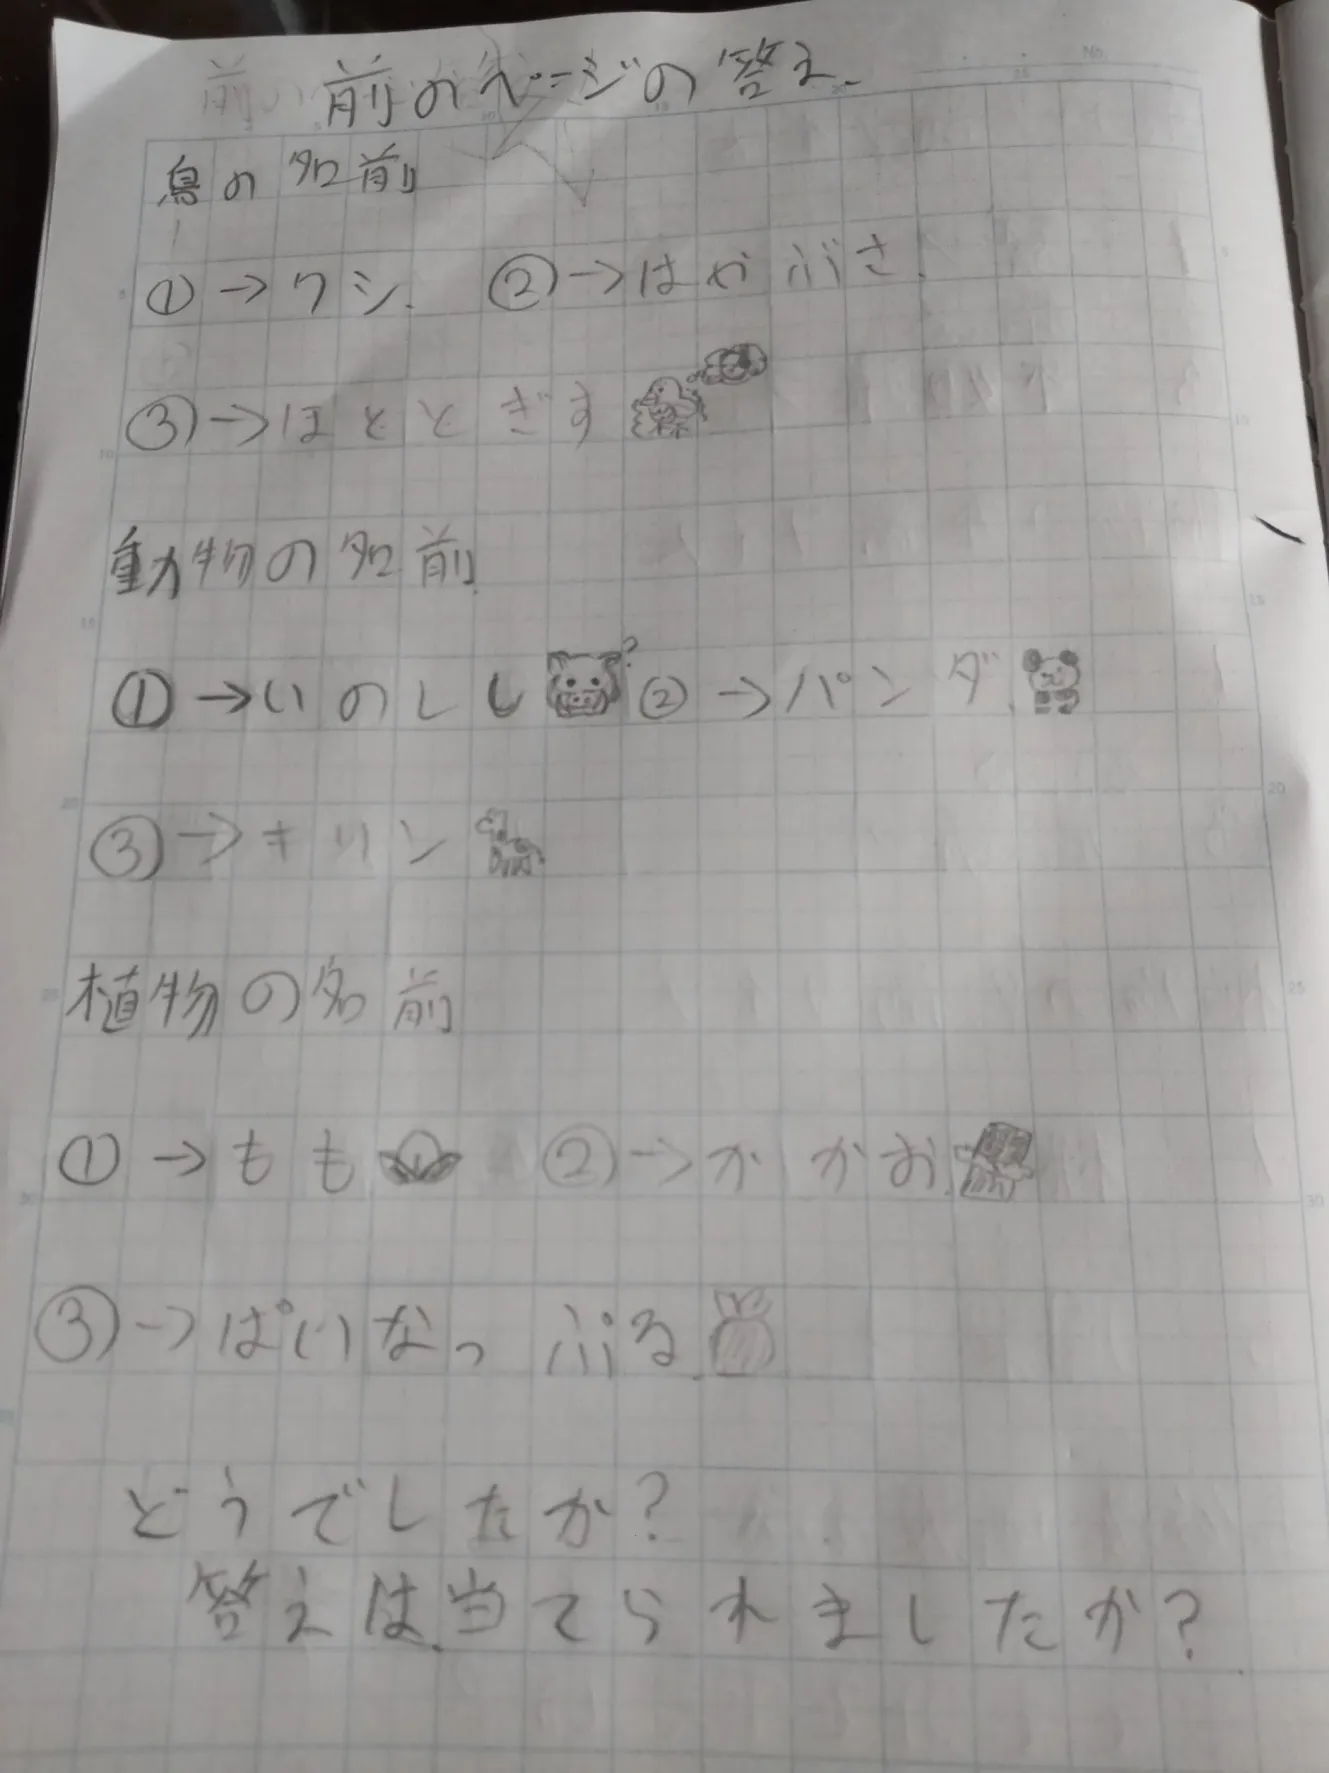 前のページの答え.
鳥の名前
①→ワシ. ②→はやぶさ.
③→ほととぎす
動物の名前
①→いのしし ? ②→パンダ.
③→キリン
植物の名前
①→もも ②→かかお.
③→ぱいなっぷる.
どうでしたか?
答えは当てられましたか?